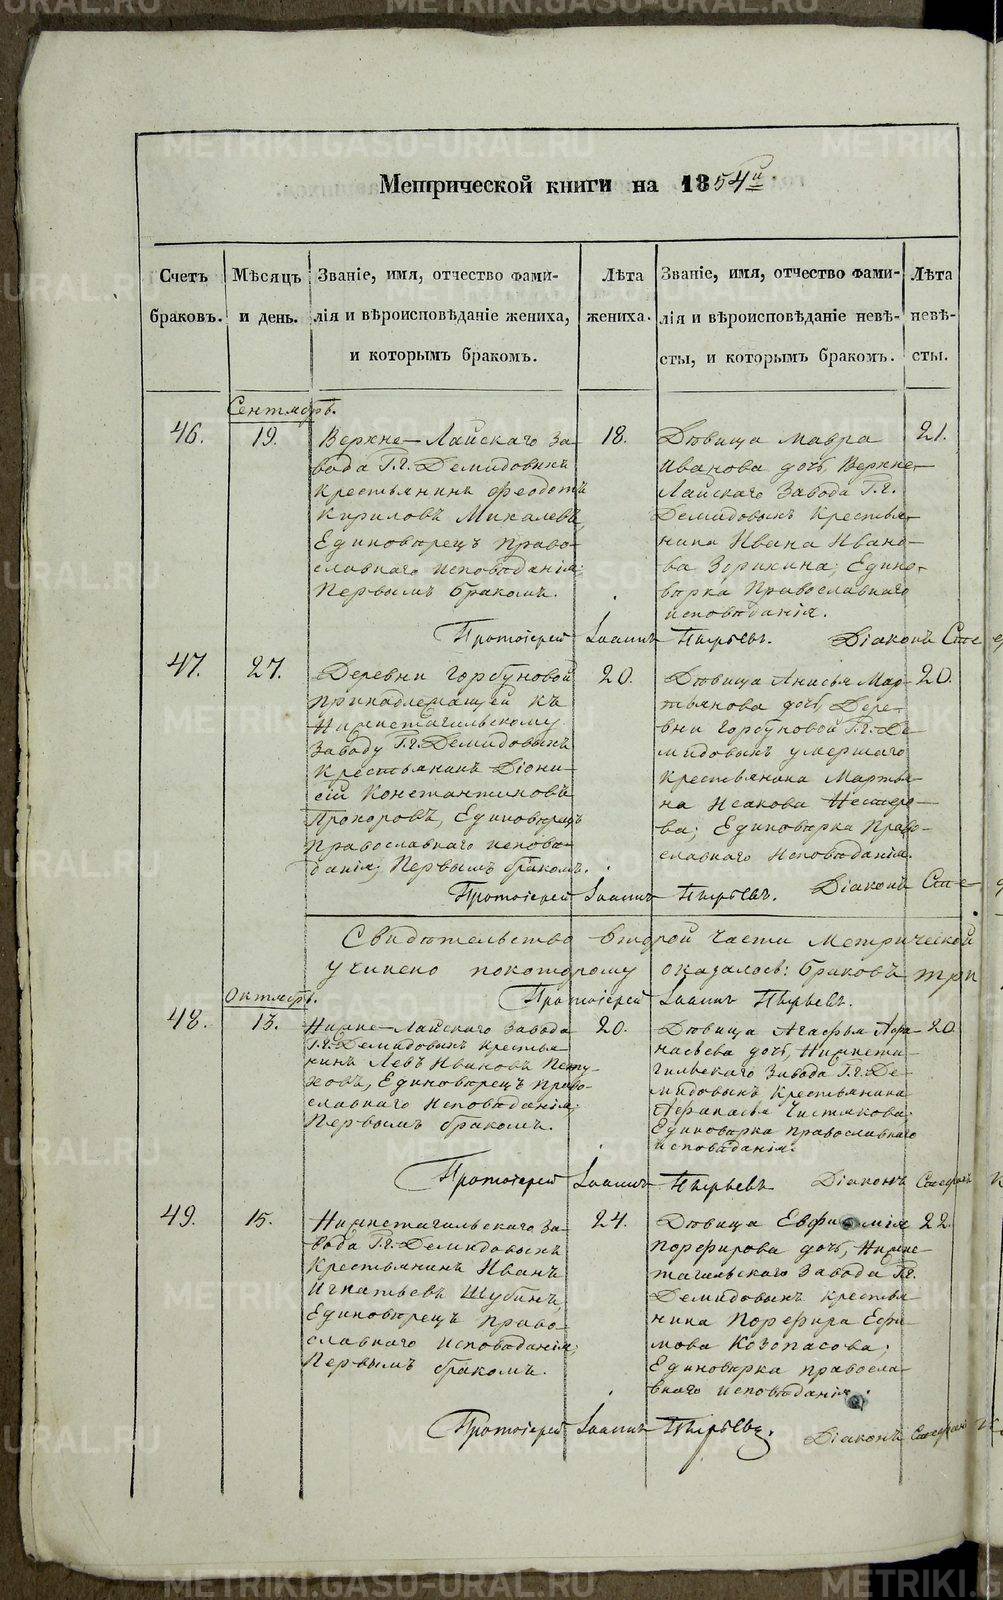 Метрической книги на 1854й
Счетъ браковъ.
Мѣсяцъ и день.
Званіе, имя, отчество фами-
лія и вѣроисповѣданіе жениха,
и которымъ бракомъ.
Лѣта жениха.
Званіе, имя, отчество фами-
лія и вѣроисповѣданіе невѣ-
сты, и которымъ бракомъ.
Лѣта невѣ-
сты.
Сентябрь.
46.
19.
Верхне-Лайскаго За-
вода Г.г. Демидовыхъ
Крестьянинъ Феодотъ
Кириловъ Михалевъ,
Единовѣрецъ Право-
славнаго исповѣданія;
Первымъ бракомъ.
18.
Дѣвица Мавра
Иванова дочь, Верхне-
Лайскаго Завода Г.г.
Демидовыхъ Крестья-
нина Ивана Ивано-
ва Зорихина; Едино-
вѣрка Православнаго
исповѣданія.
21.
Протоіерей Іоаннъ Пырьевъ. Діаконъ
47.
27.
Деревни Горбуновой
принадлежащей къ
Нижнетагильскому
Заводу Г.г. Демидовыхъ
Крестьянинъ Діони-
сій Константиновъ
Прохоровъ, Единовѣрецъ
Православнаго исповѣ-
данія; Первымъ бракомъ.
20.
Дѣвица Анисья Мар-
тьянова дочь, Дере-
вни Горбуновой Г.г. Де-
мидовыхъ умершаго
Крестьянина Мартья-
на Исакова Нестеро-
ва; Единовѣрка Право-
славнаго Исповѣданія.
20.
Протоіерей Іоаннъ Пырьевъ. Діаконъ
Свидѣтельство второй части Метрической
учинено покоторому оказалось: браковъ три
Протоіерей Іоаннъ Пырьевъ.
Октябрь.
48.
13.
Нижне-Лайскаго Завода
Г.г. Демидовыхъ Крестья-
нинъ Левъ Ивановъ Пету-
ховъ, Единовѣрецъ Право-
славнаго Исповѣданія;
Первымъ бракомъ.
20.
Дѣвица Агафья Афа-
насьева дочь, Нижнета-
гильскаго Завода Г.г. Де-
мидовыхъ Крестьянина
Афанасья Чистякова;
Единовѣрка православнаго
исповѣданія.
20.
Протоіерей Іоаннъ Пырьевъ Діаконъ Стефанъ
49.
15.
Нижнетагильскаго За-
вода Г.г. Демидовыхъ
Крестьянинъ Иванъ
Игнатьевъ Шубинъ,
Единовѣрецъ Право-
славнаго исповѣданія;
Первымъ бракомъ.
24.
Дѣвица Евфимія
Порфирова дочь, Нижне-
тагильскаго Завода Г.г.
Демидовыхъ крестья-
нина Порфира Ефи-
мова Козопасова;
Единовѣрка правосла-
внаго исповѣданія.
22.
Протоіерей Іоаннъ Пырьевъ. Діаконъ Стефанъ